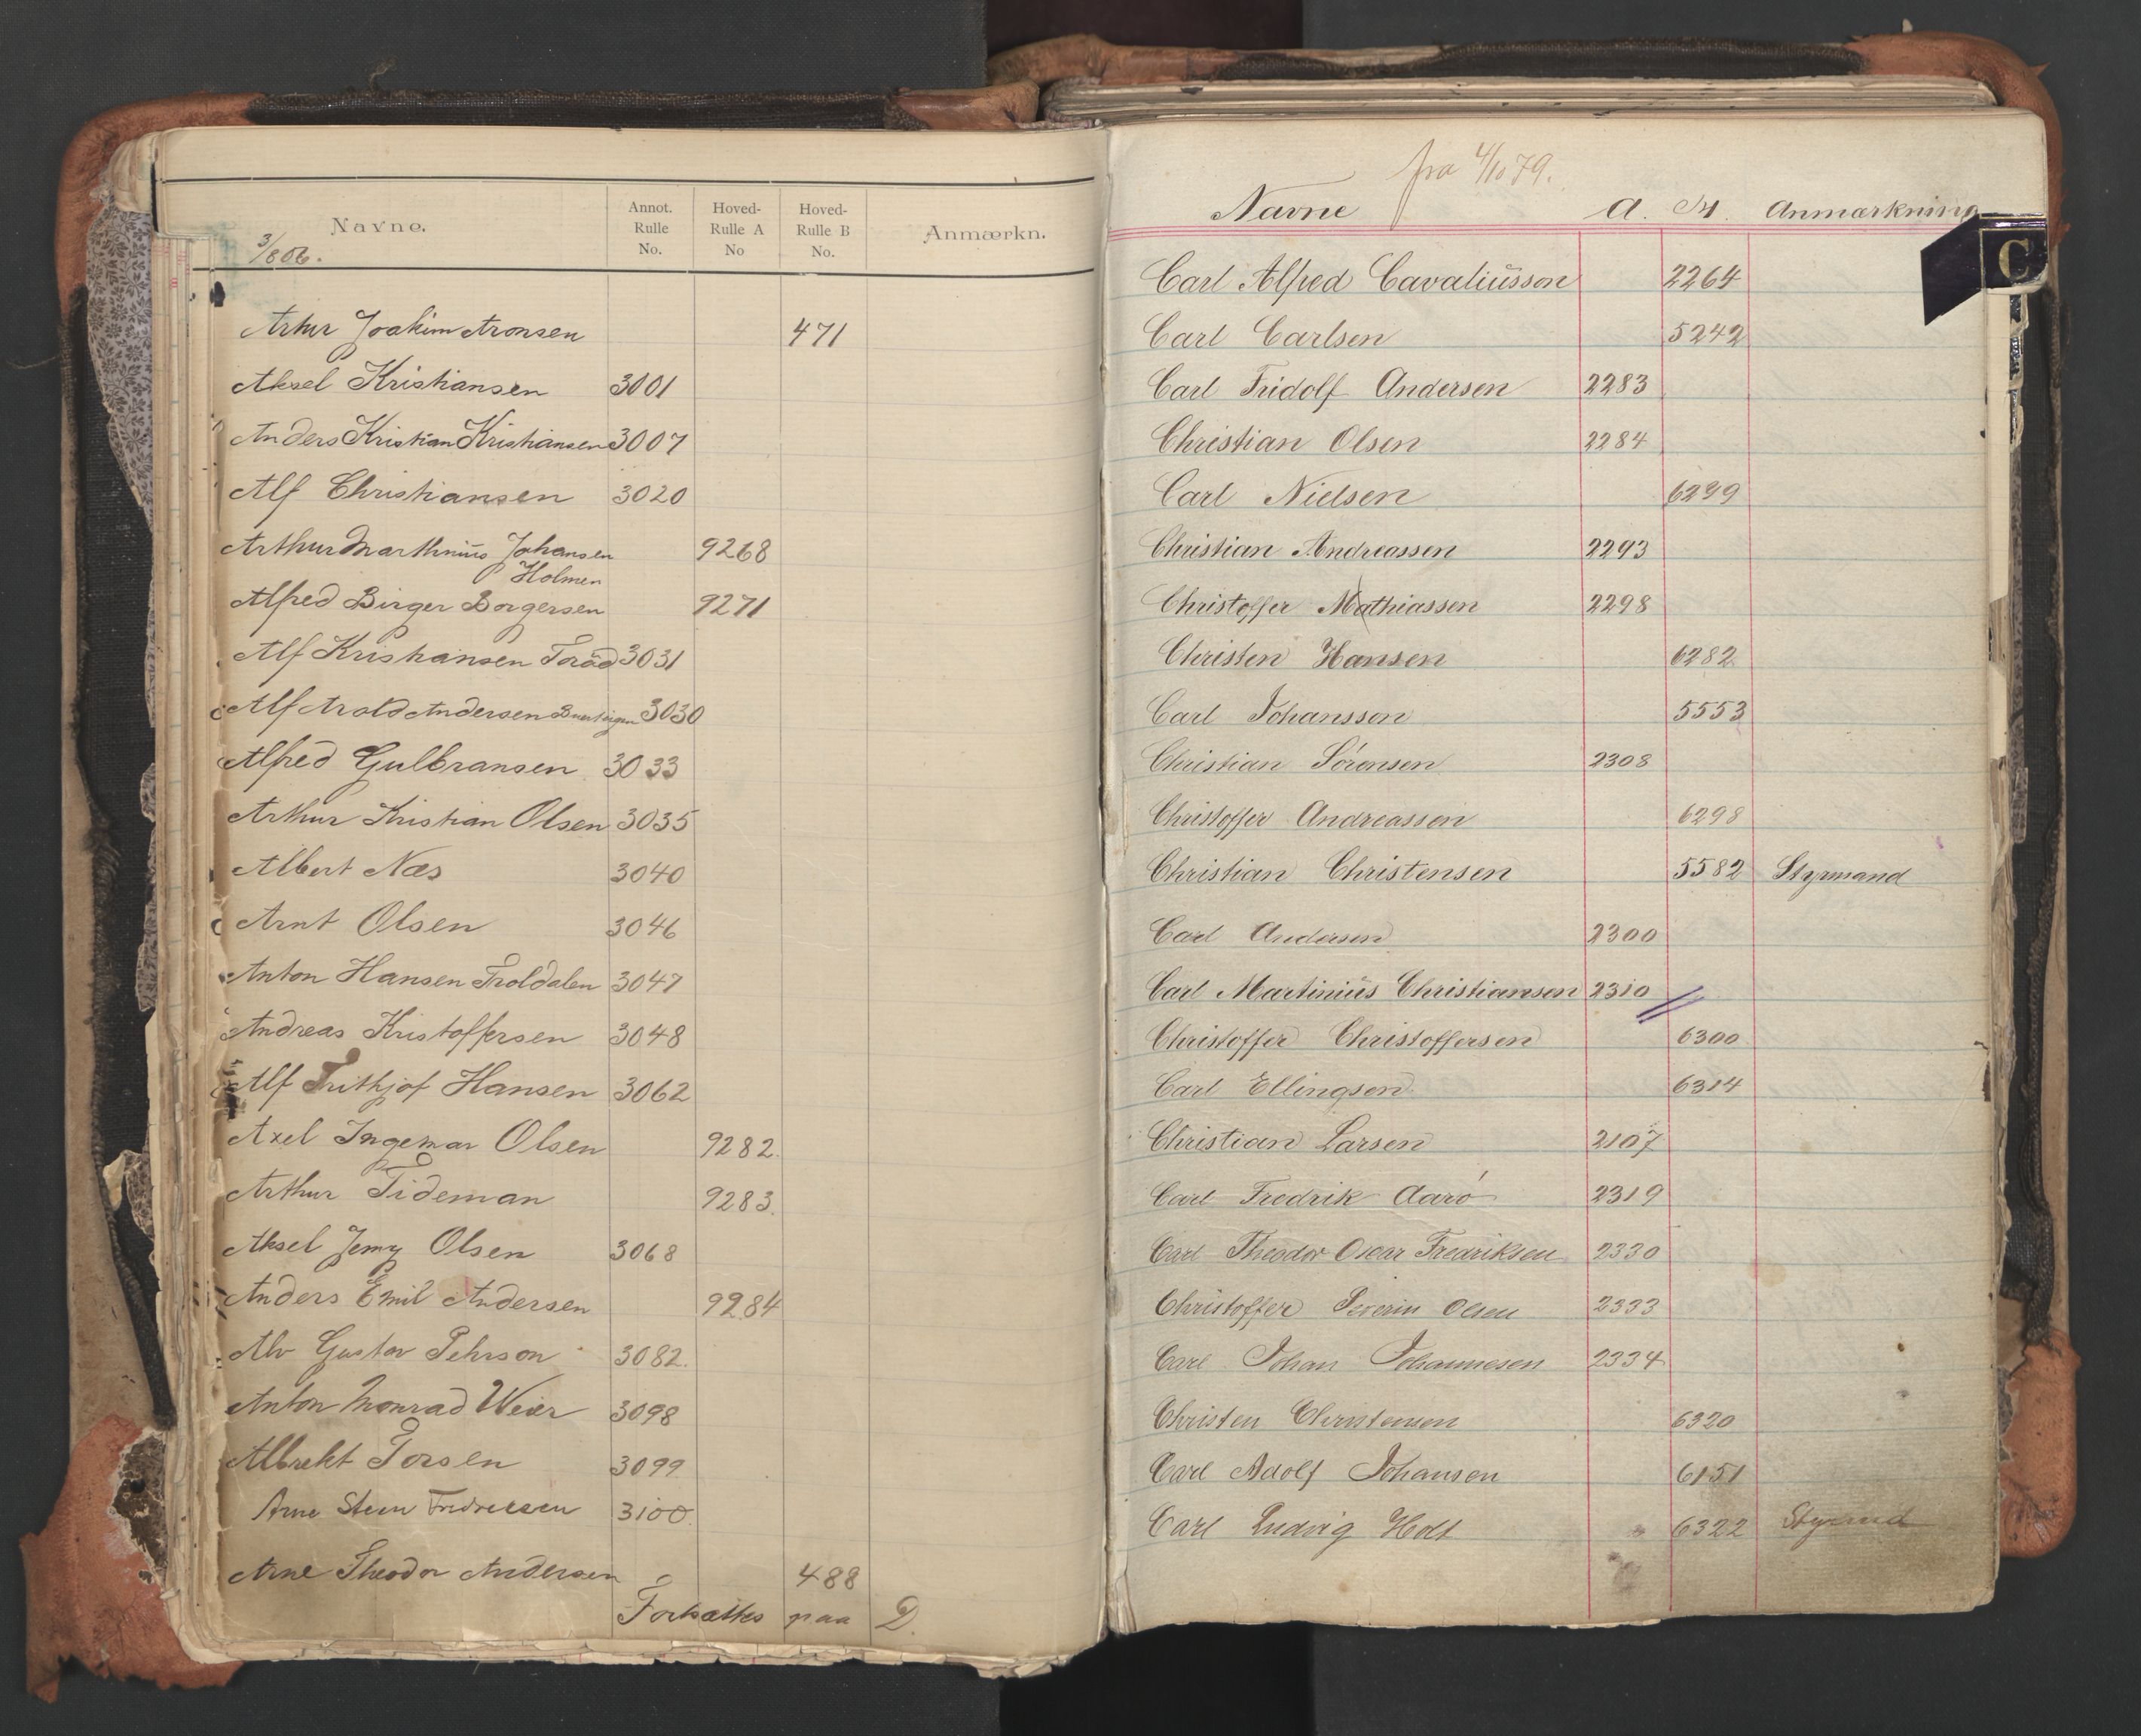 Navne.
Annot. Rulle No.
Hoved-Rulle A No
Hoved-Rulle B No.
Anmærkn.
3/8 06.
Artur Joakim Aronsen 471
Aksel Kristiansen 3001
Anders Kristian Kristiansen 3007
Alf Christiansen 3020
Arthur Marthinius Johansen 9268
Holmen
Alfred Birger Borgersen 9271
Alf Kristiansen Toråd 3031
Alf Arold Andersen 3030
Alfred Gulbransen 3033
Arthur Kristian Olsen 3035
Albert Næs 3040
Arnt Olsen 3046
Anton Hansen Troldalen 3047
Andreas Kristoffersen 3048
Alf Frithjof Hansen 3062
Axel Ingemar Olsen 9282.
Arthur Tideman 9283.
Aksel Jemy Olsen 3068
Anders Emil Andersen 9284
Alv Gustav Pehrson 3082.
Anton Monrad Weier 3098
Albrekt Torsen 3099
Arne Steen Fredriksen 3100.
Arne Theodor Andersen 488
Fortsættes paa D.
fra 4/10 79.
Navne A. H. Anmærkning
C
Carl Alfred Cavaliüsson 2264
Carl Carlsen 5242
Carl Fridolf Andersen 2283
Christian Olsen 2284
Carl Nielsen 6299
Christian Andreassen 2293
Christoffer Mathiassen 2298
Christen Hansen 6282.
Carl Johansson 5553
Christian Sørensen 2308
Christoffer Andreassen 6298
Christian Christensen 5582 Styrmand
Carl Andersen 2300
Carl Martiniüs Christiansen 2310
Christoffer Christoffersen 6300
Carl Ellingsen 6314
Christian Larsen 2107
Carl Fredrik Aarø 2319
Carl Theodor Oscar Fredriksen 2330
Christoffer Severin Olsen 2333
Carl Johan Johannesen 2334
Christen Christensen 6320
Carl Adolf Johansen 6151
Carl Ludvig Holt 6322 Styrmd